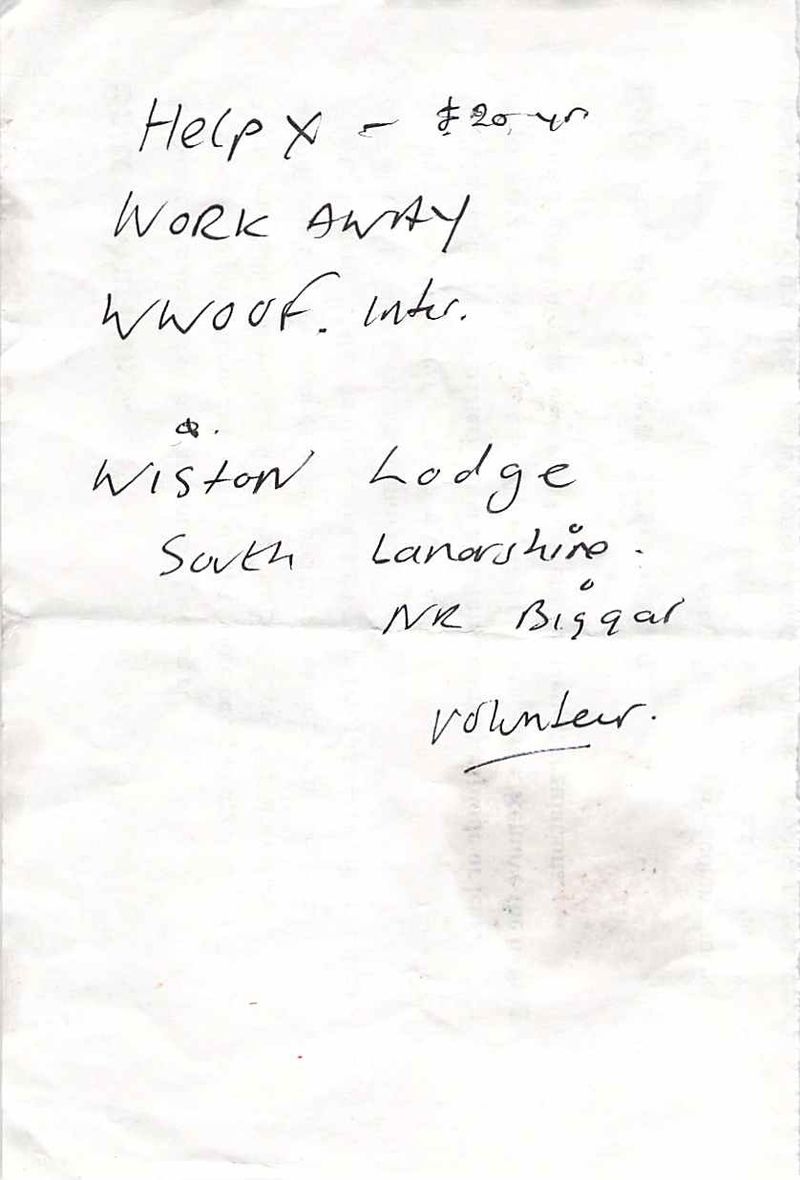 Help X - £20, yr
WORK AWAY
WWOOF. Inter.
Wiston Lodge
South Lanarshire.
NR Biggar
volunteer.